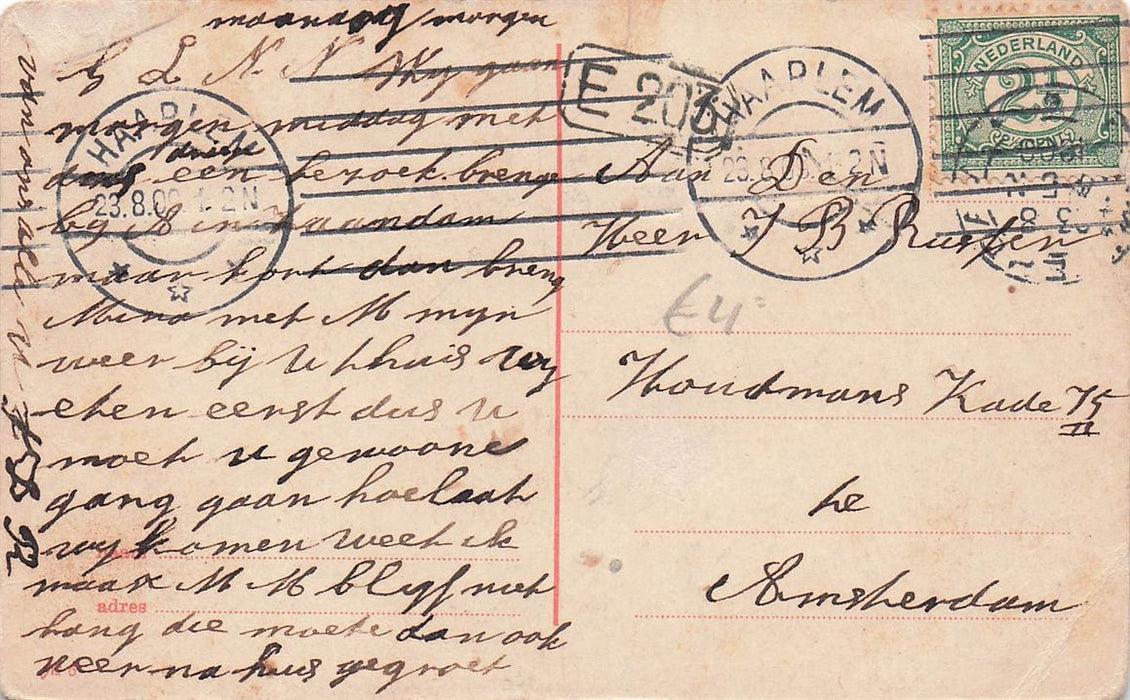 maandag morgen
G L N. N Wy gaan
morgen middag met
driese
dus een bezoek brenge
by A in Zaandam
maar kort dan breng
Mina met M myn
weer bij u thuis wy
eten eerst dus u
moet u gewoone
gang gaan hoelaat
wy komen weet ik
maar M M blyft niet
lang die moete dan ook
weer na huis gegroet
van ons alle u
adres
HAARLEM
23.8.09 1-2N
E 203
HAARLEM
23.8. 1-2N
NEDERLAND
2½
CENT
Aan Den
Heer J B Rueter
£4=
Houdmans Kade 75
II
te
Amsterdam